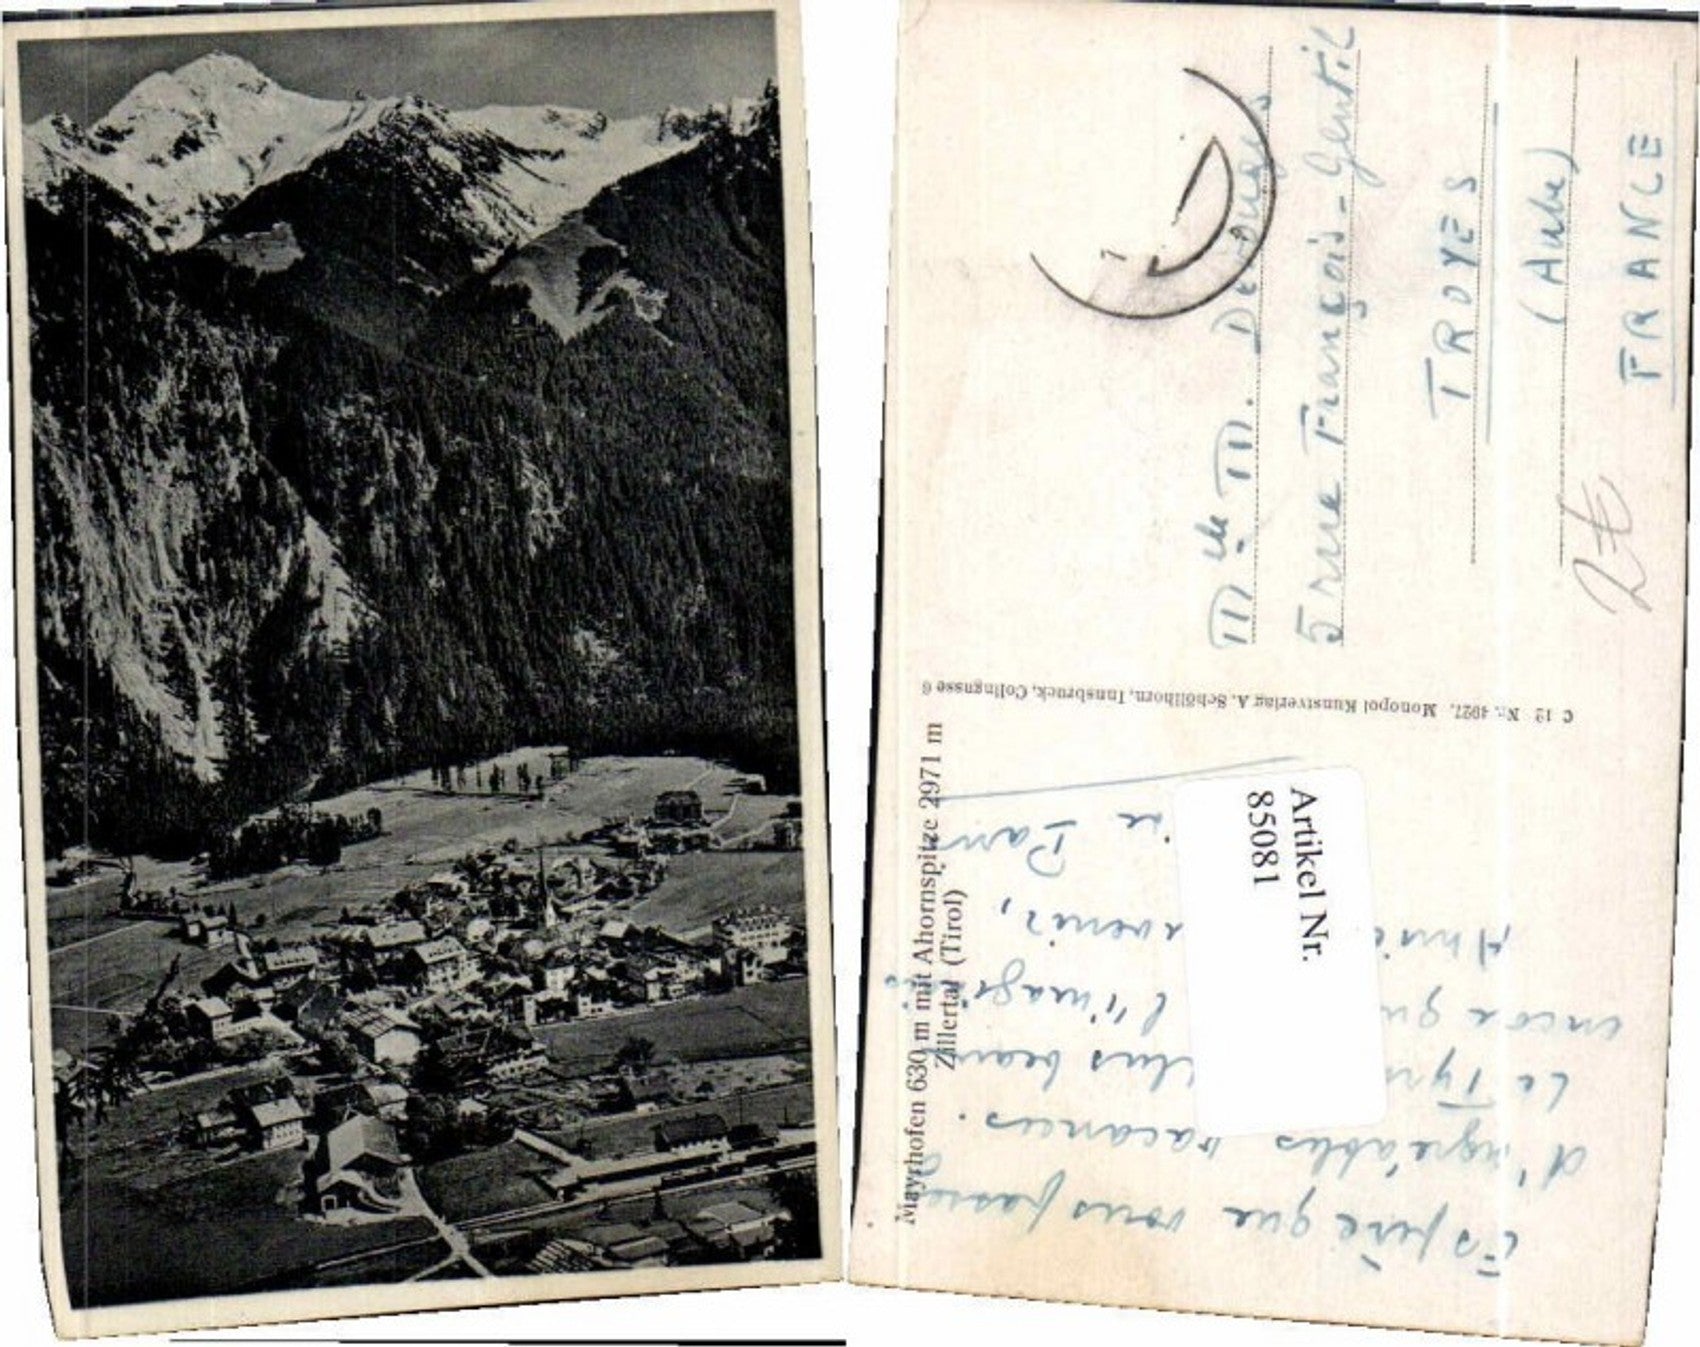 Mayrhofen 630 m mit Ahornspitze 2971 m
Zillertal (Tirol)
C 12 Nr. 4927. Monopol Kunstverlag A. Schöllhorn, Innsbruck, Colingasse 6
Artikel Nr.
85081
J'espère que vous passez
d'agréables vacances.
Le Tyr plus beau
encore qu l'imagi
Ami venir,
Mlle M.
5 rue François-Gentil
TROYES
(Aube)
FRANCE
2€